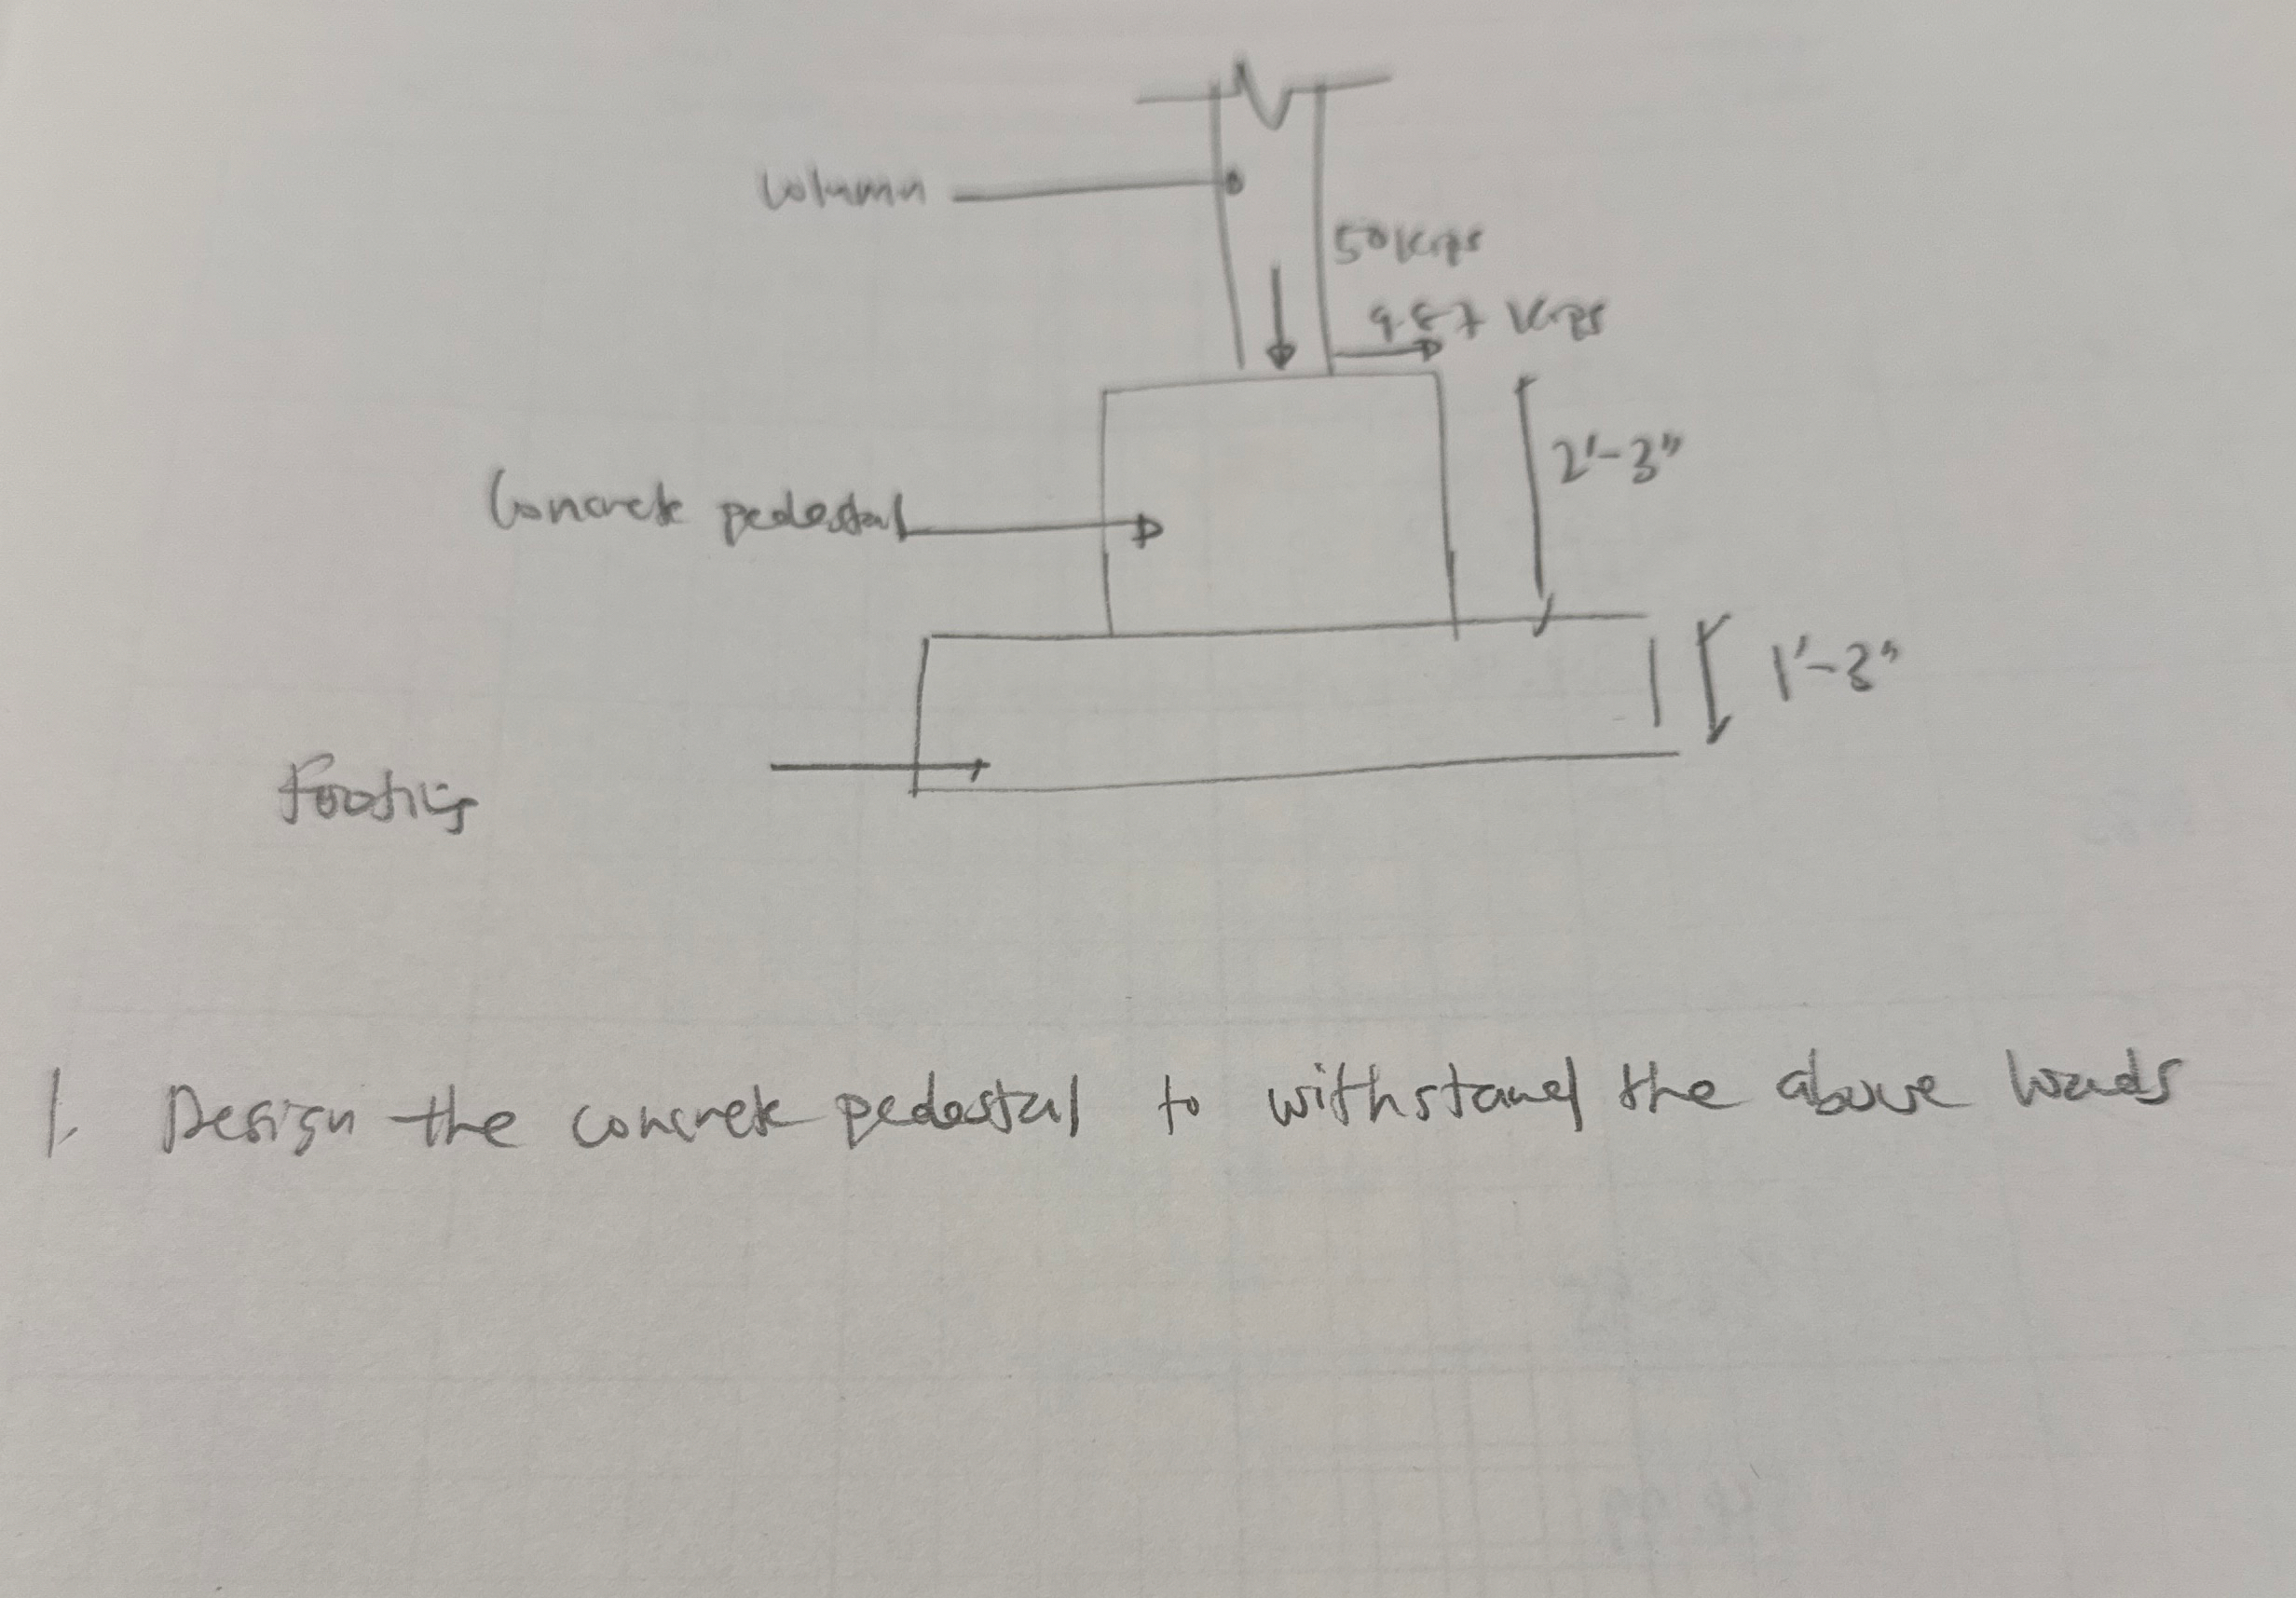 Column
50 Kips
9.87 Kips
2'-3"
Concrete pedestal
1'-3"
Footing
1. Design the concrete pedestal to withstand the above loads